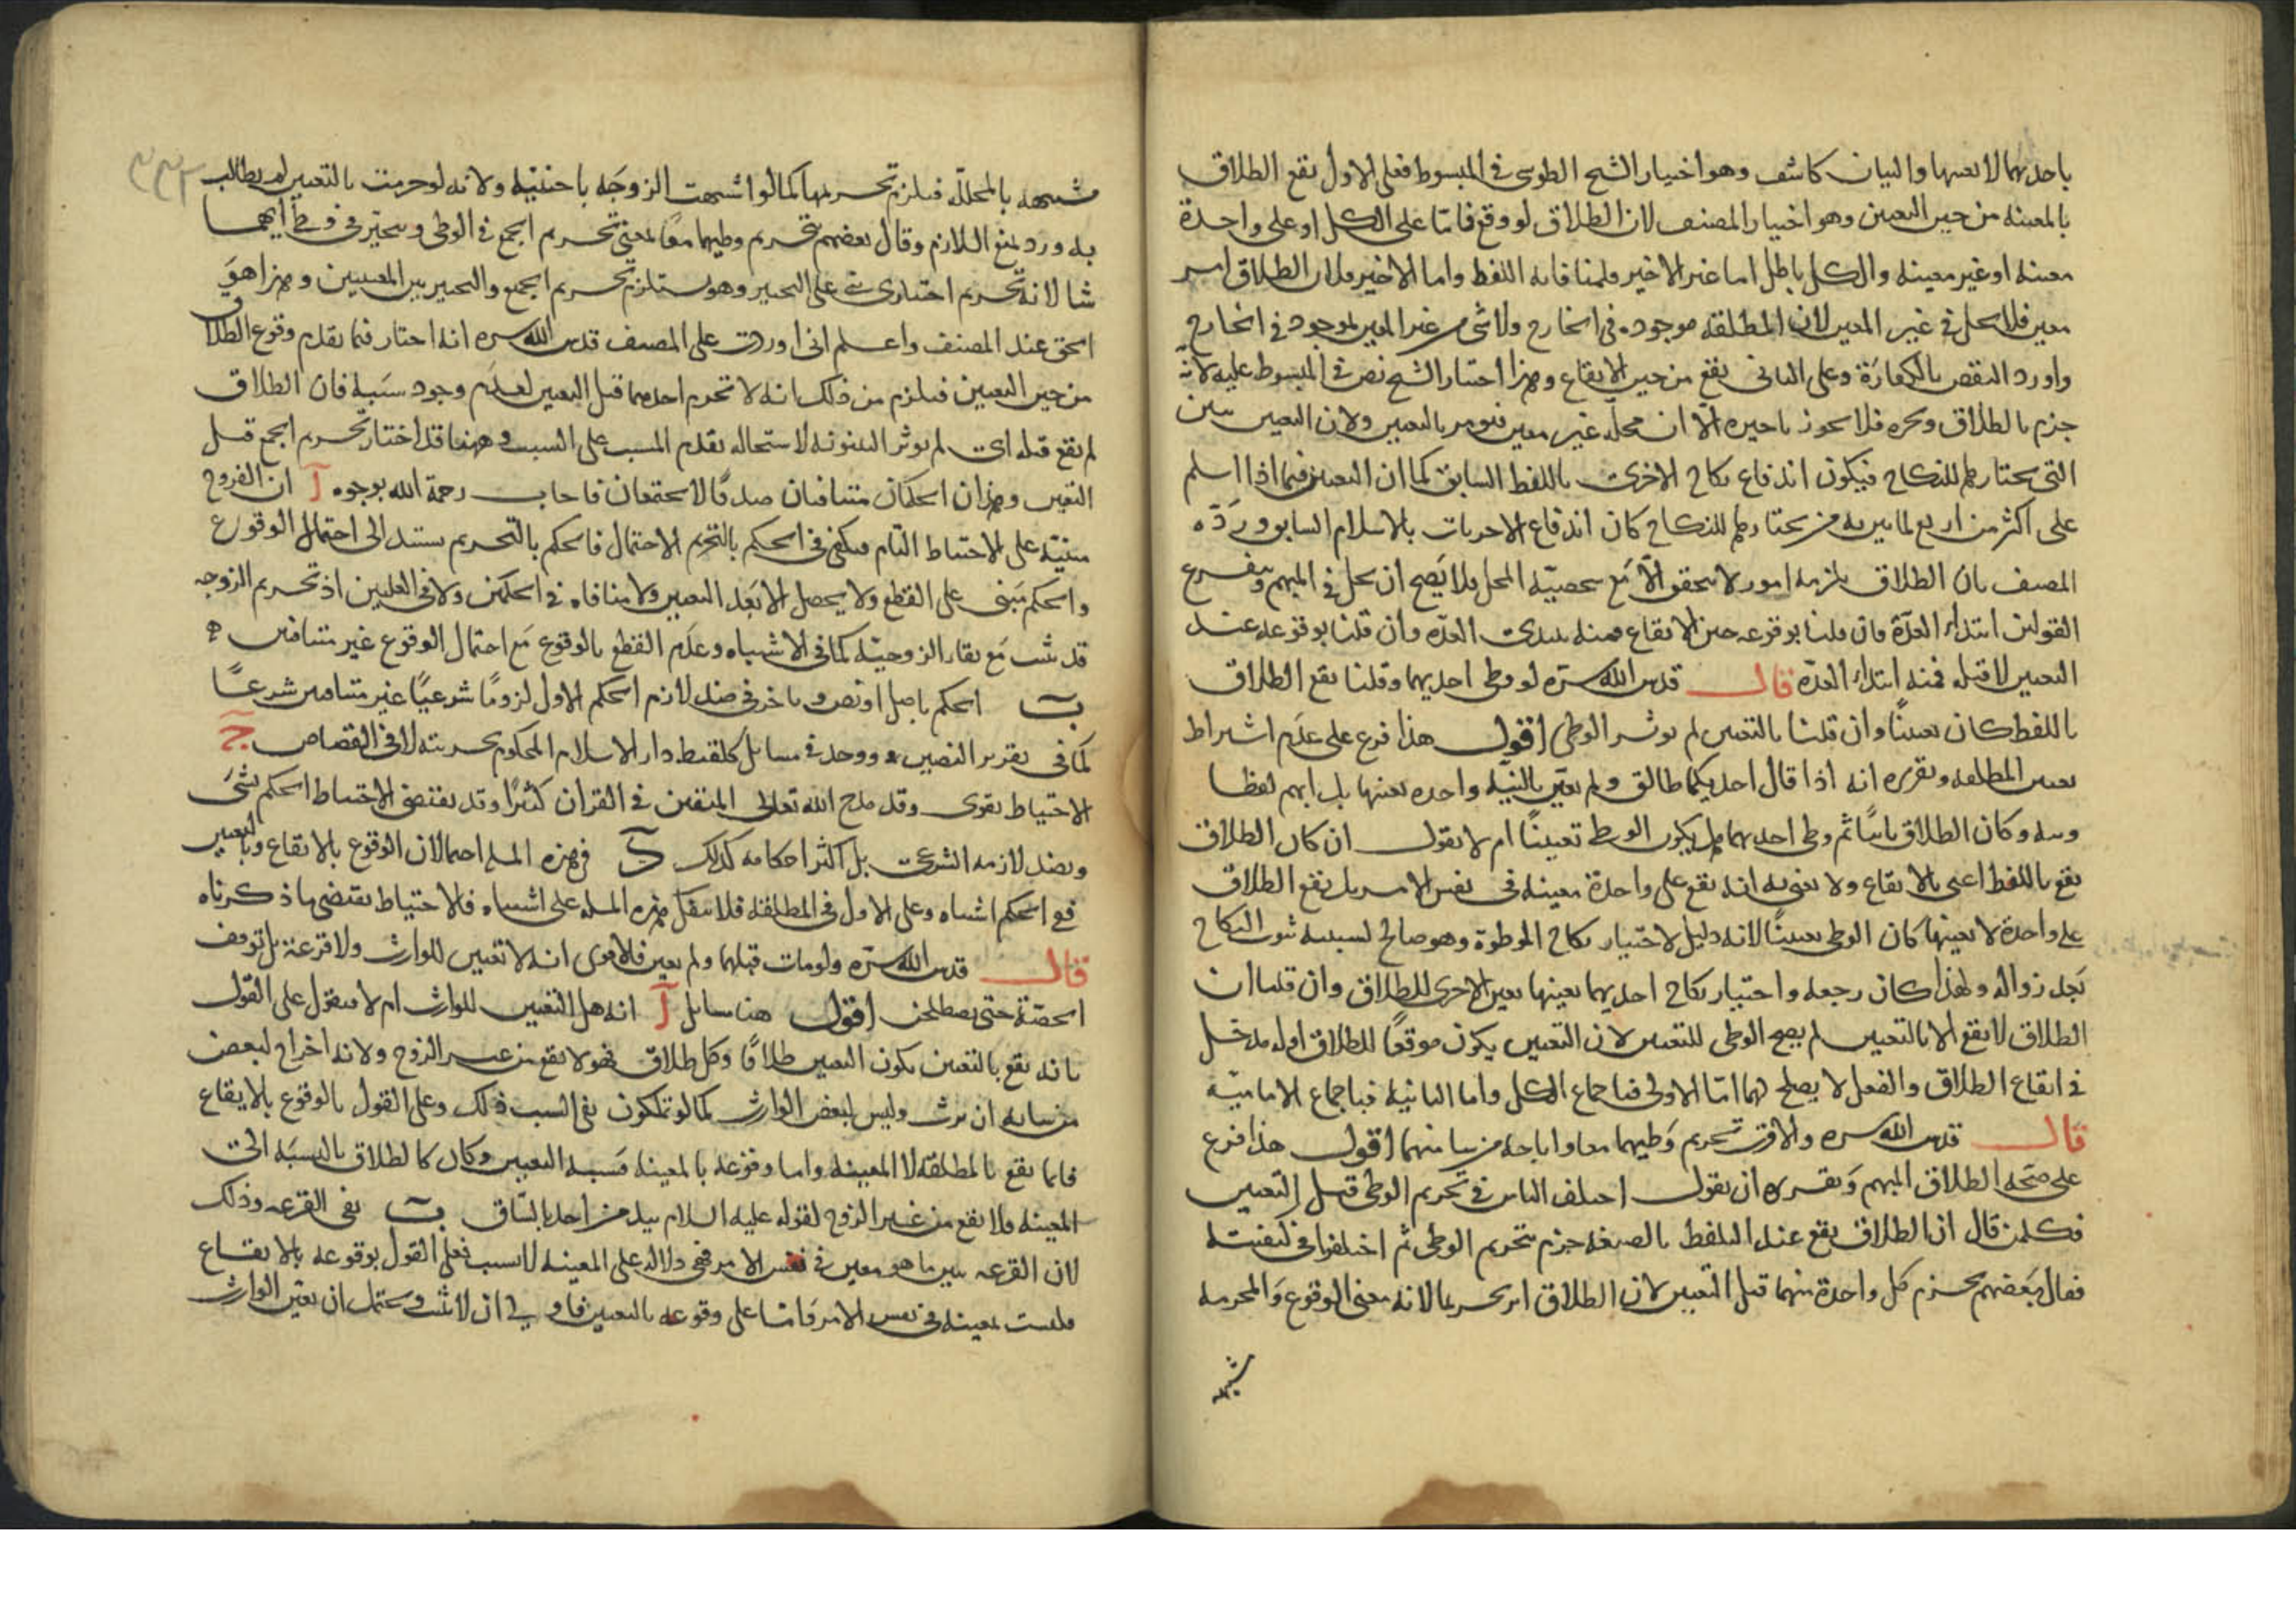 باحديهما لا بعينها والبيان كاشف وهو اختيار الشيخ الطوسي في المبسوط فعلى الاول يقع الطلاق
بالمعينه من حين التعيين وهو اختيار المصنف لان الطلاق لو وقع فاما على الكل او على واحدة
معينه او غير معينه والكل باطل اما غير الاخير فلمنافاته اللفظ واما الاخير فلان الطلاق امر
معين فلا يحل في غير المعين لان المطلقه موجوده في الخارج ولا شي من غير المعين بموجود في الخارج
واورد النقض بالكفارة وعلى الثاني يقع من حين الايقاع وهذا اختيار الشيخ نص في المبسوط عليه لانه
جزم بالطلاق ونجزه فلا يجوز تاخيره الا ان محله غير معين فيومر بالتعيين ولان التعيين يبين
التي يختارها للنكاح فيكون اندفاع نكاح الاخرى باللفظ السابق كما ان التعيين فيما اذا اسلم
على اكثر من اربع لما يبين به من يختارها للنكاح كان اندفاع الاخريات بالاسلام السابق وردّه
المصنف بان الطلاق يلزمه امور لا تتحقق الا مع شخصيّة المحل فلا يصح ان يحل في المبهم ويتفرع
القولين ابتداء العدّة فان قلنا بوقوعه حين الايقاع فمنه تبتدى العدّة وان قلنا بوقوعه عند
التعيين لا قبله فمنه ابتداء العدّة قال قدس الله سره لو وطى احديهما وقلنا يقع الطلاق
باللفظ كان تعيينًا وان قلنا بالتعيين لم يوثر الوطى اقول هذا فرع على عدم اشتراط
تعيين المطلقه وتقريره انه اذا قال احديكما طالق ولم يعيّن بالنيّة واحده بعينها بل ابهم لفظا
ونيه وكان الطلاق باينًا ثم وطى احديهما هل يكون الوطى تعيينًا ام لا نقول ان كان الطلاق
يقع باللفظ اعنى بالايقاع ولا نعني به انه يقع على واحدة معينه في نفس الامر بل يقع الطلاق
على واحدة لا بعينها كان الوطى تعيينًا لانه دليل لاختيار نكاح الموطوة وهو صالح لسببيه ثبوت النكاح
بعد زواله ولهذا كان رجعه واختيار نكاح احديهما بعينها يعين الاخرى للطلاق وان قلنا ان
الطلاق لا يقع الا بالتعيين لم يصح الوطى للتعيين لان التعيين يكون موقعًا للطلاق اوله مدخل
في ايقاع الطلاق والفعل لا يصلح لهما امّا الاولى فباجماع الكل واما الثانية فباجماع الاماميّه
قال قدس الله سره والاقرب تحريم وطيهما معا واباحه من شا منهما اقول هذا فرع
على صحه الطلاق المبهم وتقريره ان نقول اختلف الناس في تحريم الوطى قبل التعيين
فكل من قال ان الطلاق يقع عند التلفظ بالصيغه جزم بتحريم الوطى ثم اختلفوا في كيفيته
فقال بعضهم يحرم كل واحدة منهما قبل التعيين لان الطلاق اثر تحريما لانه معنى الوقوع والمحرمه
شبهه
مشبهه بالمحلله فيلزم تحريمها كما لو اشتبهت الزوجه باجنبيّه ولانه لو حرمت بالتعيين لم يطالب
به ورد بمنع اللازم وقال بعضهم بتحريم وطيهما معًا بمعنى تحريم الجمع في الوطى ويتخير في وطى ايهما
شا لانه تحريم اختيارى على التخيير وهو يستلزم تحريم الجمع والتخيير بين المعنيين وهذا هو
الحق عند المصنف واعلم اني اوردت على المصنف قدس الله سره انه اختار فيما تقدم وقوع الطلاق
من حين التعيين فيلزم من ذلك انه لا تحرم احديهما قبل التعيين لعدم وجود سببه فان الطلاق
لم يقع قبله اى لم يوثر البينونه لاستحاله تقدم المسبب على السبب وهنا قد اختار تحريم الجمع قبل
التعيين وهذان الحكمان متنافيان صدقًا لا يجتمعان فاجاب رحمة الله بوجوه آ ان الفروج
مبنيّه على الاحتياط التام فيكفي في الحكم بالتحريم الاحتمال فالحكم بالتحريم يستند الى احتمال الوقوع
والحكم مبني على القطع ولا يحصل الا بعد التعيين ولا منافاه في الحكمين ولا في العلتين اذ تحريم الزوجه
قد ثبت مع بقاء الزوجيّة كما في الاشتباه وعدم القطع بالوقوع مع احتمال الوقوع غير متنافيين
ب الحكم باصل او نص وباخر في ضد لازم الحكم الاول لزومًا شرعيًا غير متنافيين شرعًا
كما في تقرير النصين ووجد في مسايل كلقيط دار الاسلام المحكوم بحريته لا في القصاص ج
الاحتياط تقوى وقد مدح الله تعالى المتقين في القران كثيرًا وقد يقتضى الاحتياط الحكم بشى
وبضد لازمه الشرعي بل اكثر احكامه كذلك د في هذه المسله احتمالان الوقوع بالايقاع وبالتعيين
ففي الحكم اشتباه وعلى الاول في المطلقه فلا تنفك هذه المسله على اشتباه فالاحتياط يقتضي ما ذكرناه
قال قدس الله سره ولو مات قبلهما ولم يعين فالاقوى انه لا تعيين للوارث ولا قرعة بل توقف
الحصّة حتى يصطلحن اقول هنا مسايل آ انه هل التعيين للوارث ام لا فنقول على القول
بانه يقع بالتعيين يكون التعيين طلاقًا وكل طلاق فهو لا يقع من غير الزوج ولانه اخراج لبعض
من شانه ان يرث وليس لبعض الوارث كما لو تملكون نفي النسب ذلك وعلى القول بالوقوع بالايقاع
فانما يقع بالمطلقه لا المعينه واما وقوعه بالمعينه فسببه التعيين وكان كالطلاق بالنسبة الى
المعينه فلا يقع من غير الزوج لقوله عليه السلام بيد من اخذ بالساق ب نفي القرعه وذلك
لان القرعه تبين ما هو معين في نفس الامر فهي دلاله على المعينه لا سبب فعلى القول بوقوعه بالايقاع
فليست بمعينه في نفس الامر وامّا على وقوعه بالتعيين فاولى ان لا تثبت ويحتمل ان يعيّن الوارث